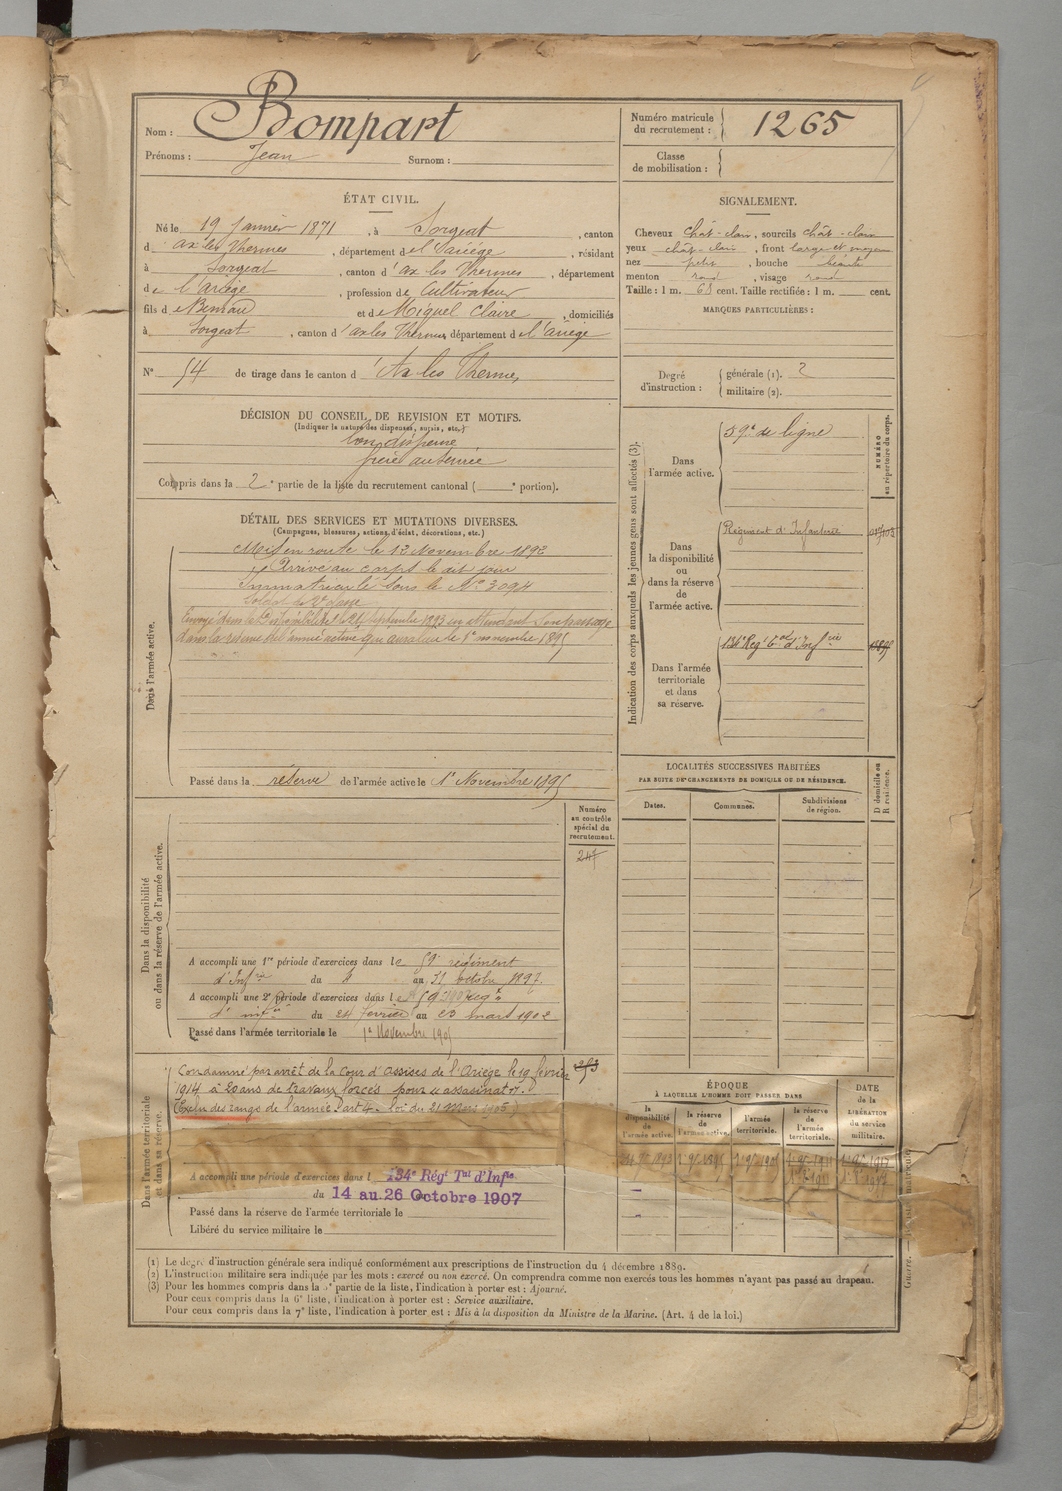 Nom : Bompart
Prénoms : Jean Surnom :
Numéro matricule du recrutement : 1265
Classe de mobilisation :
ÉTAT CIVIL.
Né le 19 Janvier 1871, à Sorgeat, canton
d ax les Thermes, département de l'Ariége, résidant
à Sorgeat, canton d'ax les Thermes, département
de l'ariège, profession de Cultivateur
fils de et de Miquel Claire, domiciliés
à Sorgeat, canton d'ax les Thermes département de l'Ariège
N° 54 de tirage dans le canton d'Ax les Thermes
SIGNALEMENT.
Cheveux chât-clair, sourcils chât-clain
yeux chât-clain, front large et moyen
nez petit, bouche
menton rond, visage rond
Taille : 1 m. 68 cent. Taille rectifiée : 1 m. cent.
MARQUES PARTICULIÈRES :
Degré d'instruction : générale (1). 2
militaire (2).
DÉCISION DU CONSEIL DE REVISION ET MOTIFS.
(Indiquer la nature des dispenses, sursis, etc.)
bon dispensé
frère au service
Compris dans la 2e partie de la liste du recrutement cantonal ( e portion).
DÉTAIL DES SERVICES ET MUTATIONS DIVERSES.
(Campagnes, blessures, actions d'éclat, décorations, etc.)
Dans l'armée active.
Mis en route le 12 Novembre 1892
Arrivé au corps le dit jour
Immatriculé sous le N° 3094
Soldat de 2e classe
Envoyé dans la disponibilité le 24 Septembre 1893 en attendant son passage
dans la réserve de l'armée active qui aura lieu le 1er novembre 1895
Passé dans la réserve de l'armée active le 1er Novembre 1895
Indication des corps auxquels les jeunes gens sont affectés (3).
NUMÉRO au répertoire du corps.
Dans l'armée active.
59e de ligne
Dans la disponibilité ou dans la réserve de l'armée active.
Régiment d'Infanterie
Dans l'armée territoriale et dans sa réserve.
134e Regt tal d'Infrie
LOCALITÉS SUCCESSIVES HABITÉES
PAR SUITE DE CHANGEMENTS DE DOMICILE OU DE RÉSIDENCE.
Dates. Communes. Subdivisions de région. D domicile ou R résidence.
Numéro au contrôle spécial du recrutement.
247
Dans la disponibilité ou dans la réserve de l'armée active.
A accompli une 1re période d'exercices dans le 59e régiment
d'Infrie du 4 au 31 octobre 1897.
A accompli une 2e période d'exercices dans le 59e regt
d'infrie du 24 fevrier au 23 mars 1902
Passé dans l'armée territoriale le 1er Novembre 1905
Dans l'armée territoriale et dans sa réserve.
Condamné par arrêt de la Cour d'Assises de l'Ariège le 19 février
1914 à 20 ans de travaux forcés pour "assassinat".
(Exclu des rangs de l'armée art 4. loi du 21 Mars 1905)
253
A accompli une période d'exercices dans l 134e Régt Tal d'Infie
du 14 au 26 Octobre 1907
Passé dans la réserve de l'armée territoriale le
Libéré du service militaire le
ÉPOQUE
À LAQUELLE L'HOMME DOIT PASSER DANS
la disponibilité de l'armée active. la réserve de l'armée active. l'armée territoriale. la réserve de l'armée territoriale.
DATE de la LIBÉRATION du service militaire.
(1) Le degré d'instruction générale sera indiqué conformément aux prescriptions de l'instruction du 4 décembre 1889.
(2) L'instruction militaire sera indiquée par les mots : exercé ou non exercé. On comprendra comme non exercés tous les hommes n'ayant pas passé au drapeau.
(3) Pour les hommes compris dans la 5e partie de la liste, l'indication à porter est : Ajourné.
Pour ceux compris dans la 6e liste, l'indication à porter est : Service auxiliaire.
Pour ceux compris dans la 7e liste, l'indication à porter est : Mis à la disposition du Ministre de la Marine. (Art. 4 de la loi.)